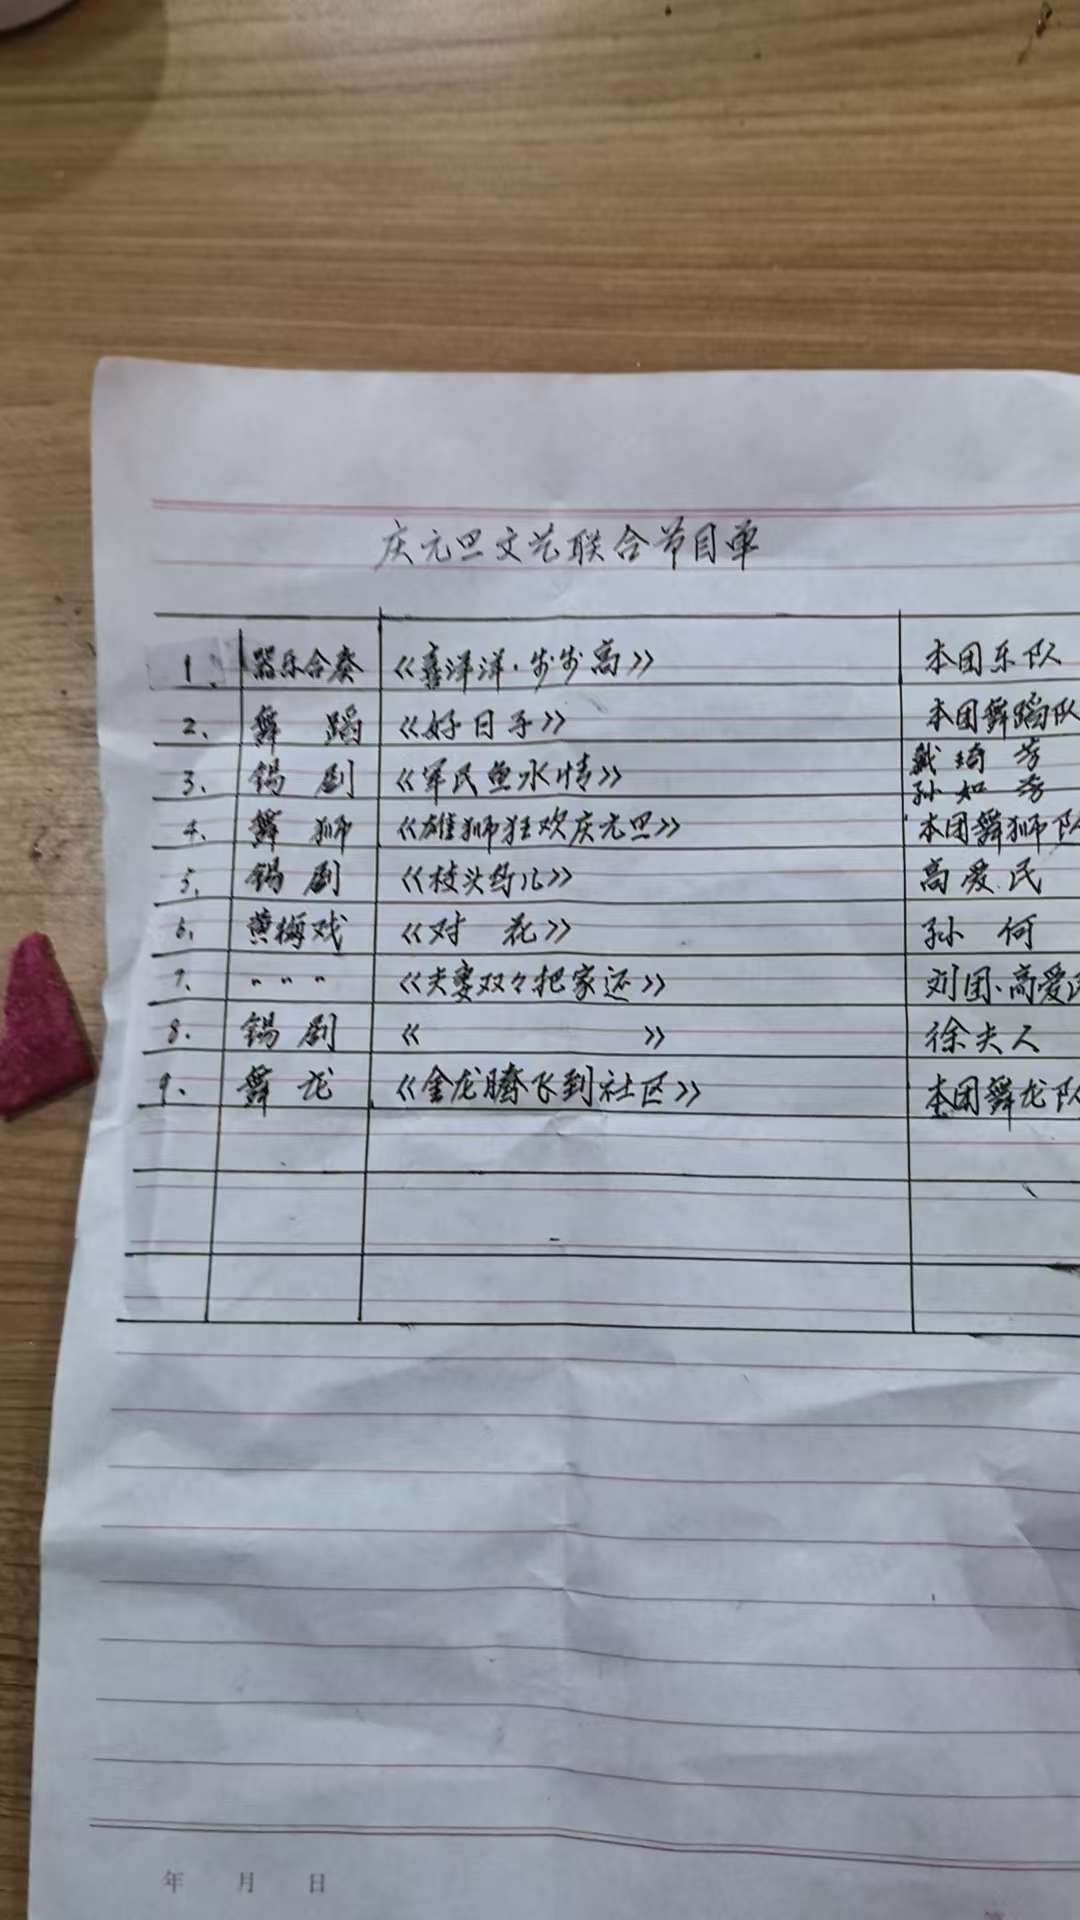 庆元旦文艺联合节目单
1. 器乐合奏 《喜洋洋·步步高》 本团乐队
2. 舞 蹈 《好日子》 本团舞蹈队
3. 锡 剧 《军民鱼水情》 戴琦芳
孙如芳
4. 舞 狮 《雄狮狂欢庆元旦》 本团舞狮队
5. 锡 剧 《枝头鸟儿》 高爱民
6. 黄梅戏 《对 花》 孙 何
7. 〃 〃 〃 《夫妻双々把家还》 刘团、高爱民
8. 锡 剧 《 》 徐夫人
9. 舞 龙 《金龙腾飞到社区》 本团舞龙队
年 月 日